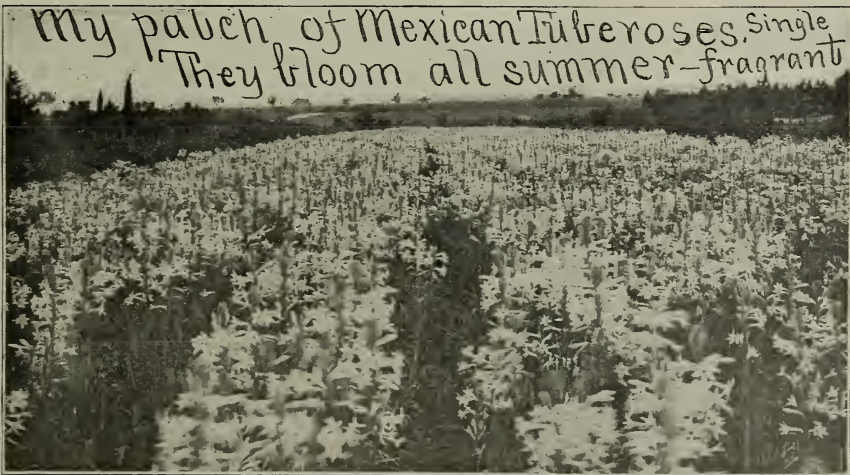 My patch of Mexican Tuberoses. Single
They bloom all summer-fragrant